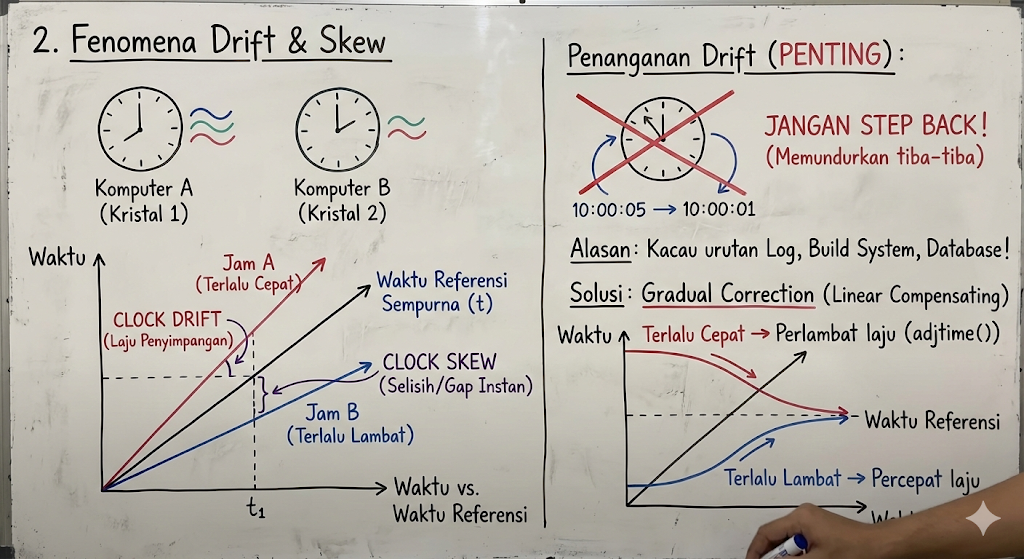 2. Fenomena Drift & Skew
Komputer A
(Kristal 1)
Komputer B
(Kristal 2)
Waktu
Jam A
(Terlalu Cepat)
Waktu Referensi
Sempurna (t)
CLOCK DRIFT
(Laju Penyimpangan)
CLOCK SKEW
(Selisih/Gap Instan)
Jam B
(Terlalu Lambat)
t₁
Waktu vs.
Waktu Referensi
Penanganan Drift (PENTING) :
JANGAN STEP BACK!
(Memundurkan tiba-tiba)
10:00:05 → 10:00:01
Alasan: Kacau urutan Log, Build System, Database!
Solusi: Gradual Correction (Linear Compensating)
Waktu
Terlalu Cepat → Perlambat laju (adjtime())
Waktu Referensi
Terlalu Lambat → Percepat laju